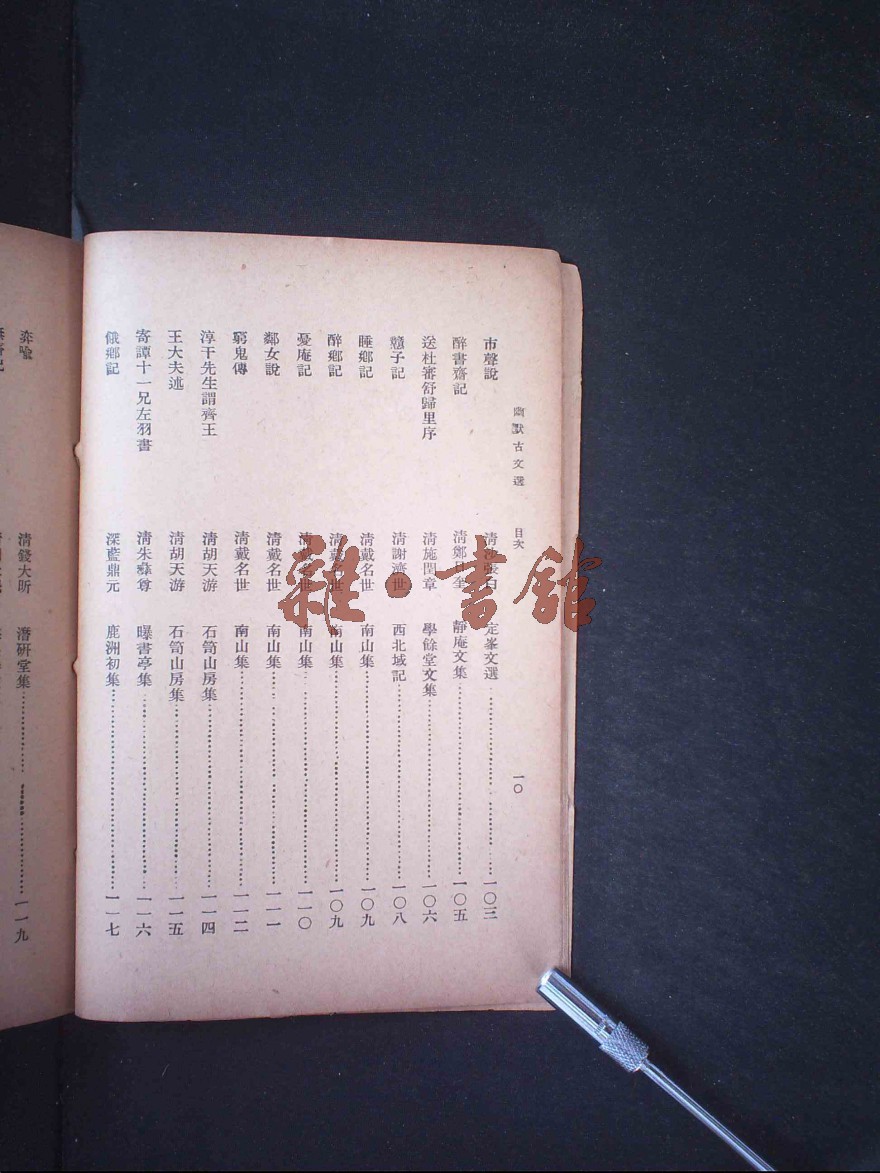 幽默古文選 目次 一〇
市聲說 清沙張白 定峯文選 一〇三
醉書齋記 清鄭日奎 靜庵文集 一〇五
送杜審舒歸里序 清施閏章 學餘堂文集 一〇六
戇子記 清謝濟世 西北域記 一〇八
睡鄉記 清戴名世 南山集 一〇九
醉鄉記 清戴名世 南山集 一〇九
憂庵記 清戴名世 南山集 一一〇
鄰女說 清戴名世 南山集 一一一
窮鬼傳 清戴名世 南山集 一一二
淳于先生謂齊王 清胡天游 石笥山房集 一一四
王大夫述 清胡天游 石笥山房集 一一五
寄譚十一兄左羽書 清朱彝尊 曝書亭集 一一六
餓鄉記 深藍鼎元 鹿洲初集 一一七
弈喻 清錢大昕 潛研堂集 一一九
雜·書館